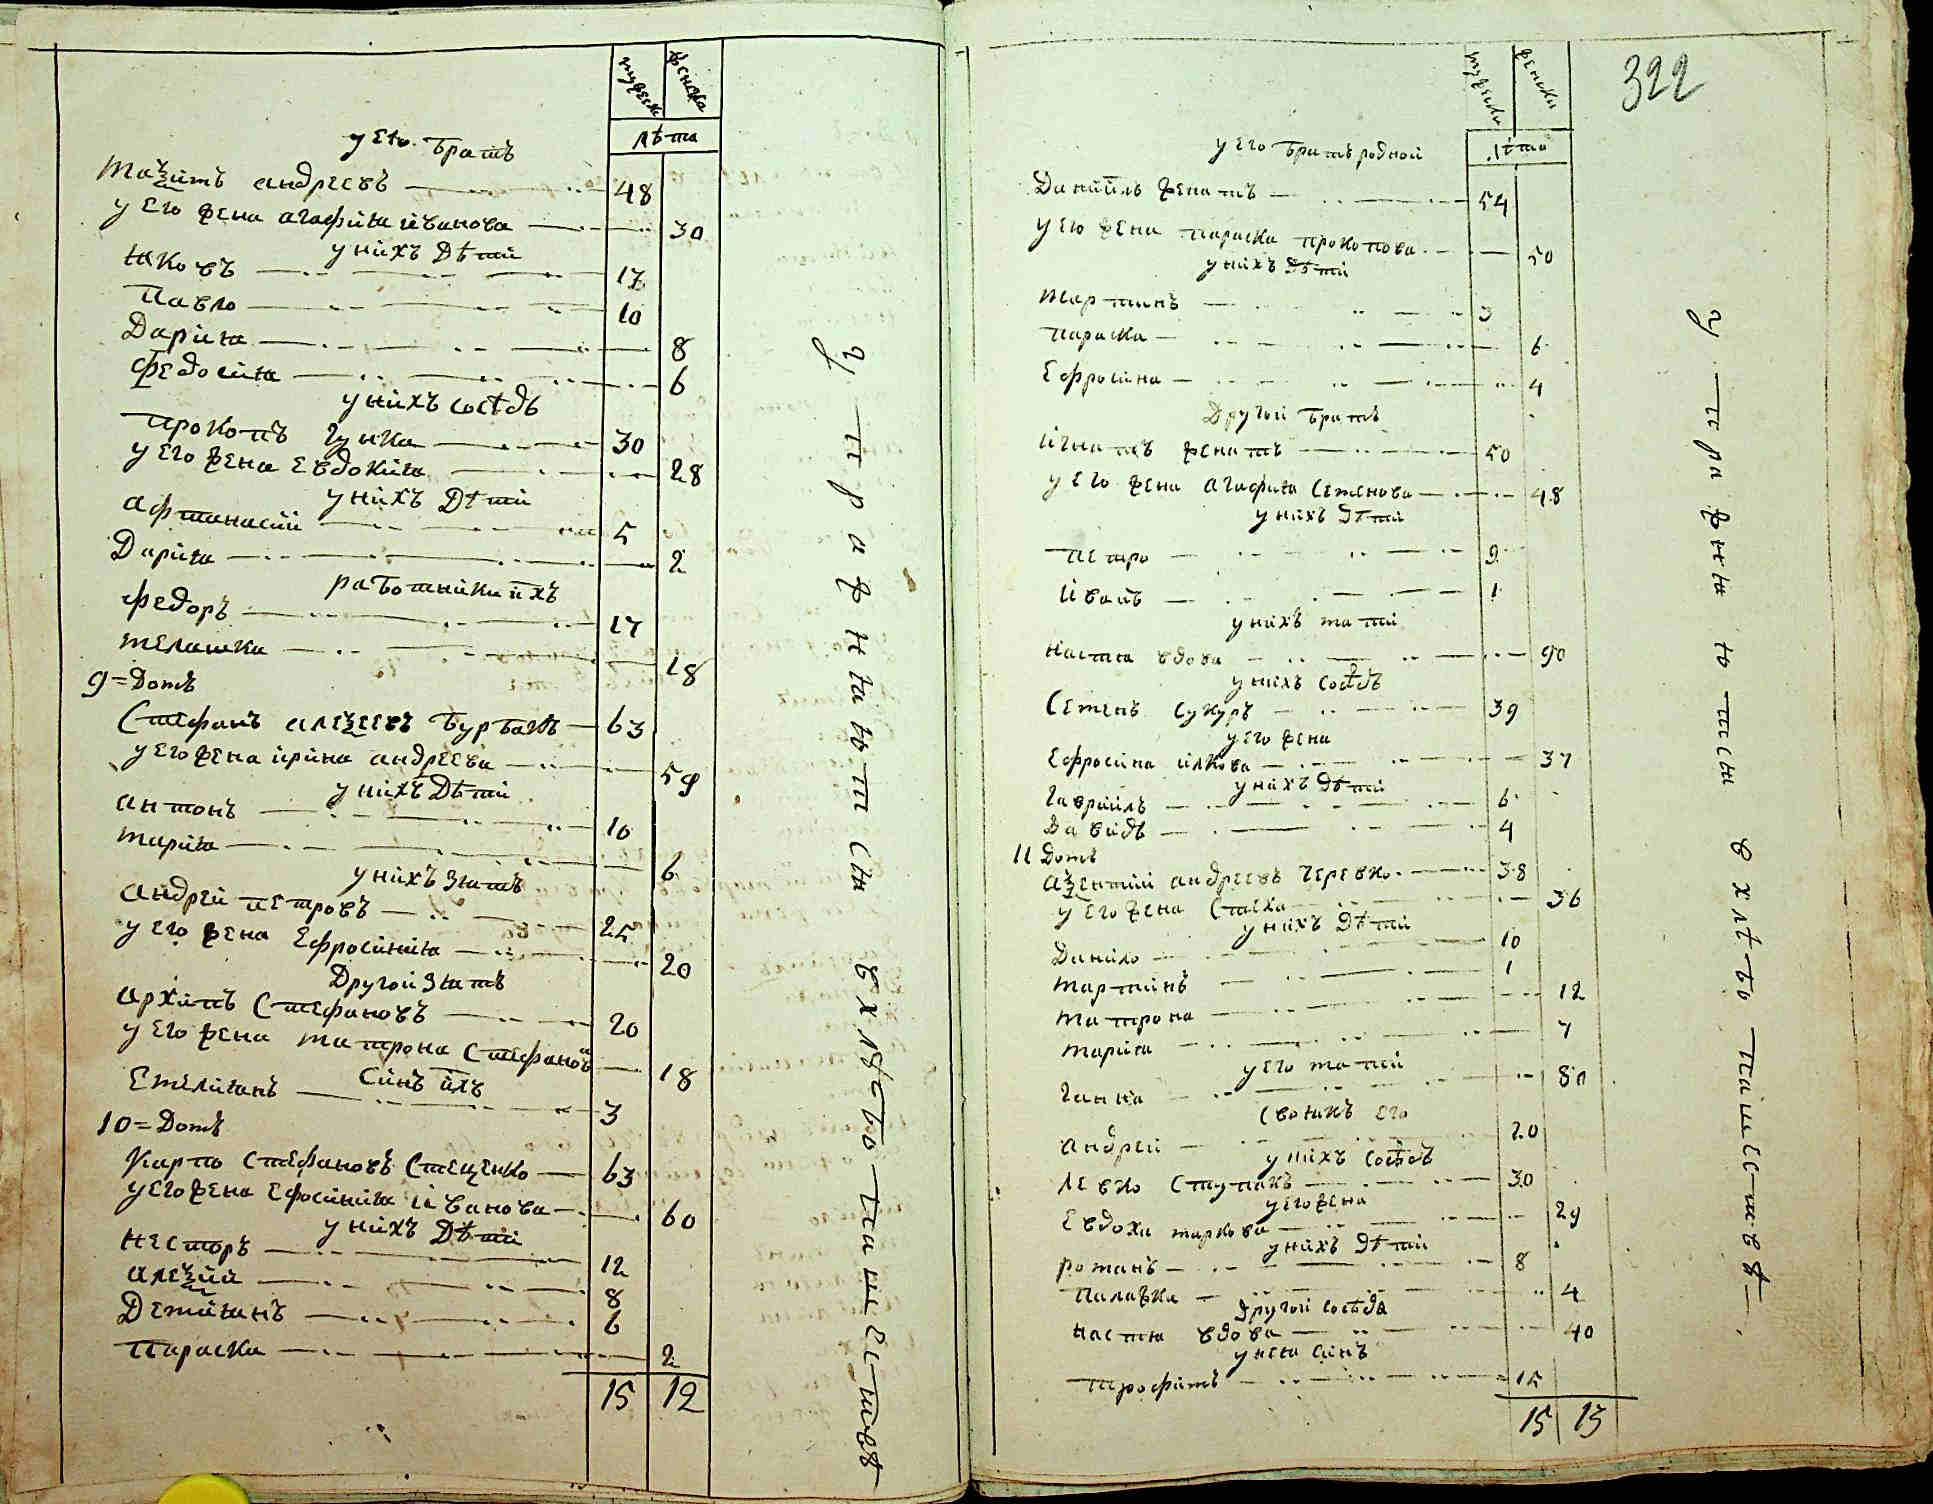 мужеска женска
лѣта
у его братъ
Маѯимъ андреевъ 48
у его жена агафия иванова 30
у нихъ дѣти
Яковъ 17
Павло 10
Дария 8
Федосия 6
у нихъ сосѣдъ
Прокопъ Гунка 30
у его жена Евдокия 28
у нихъ дѣти
Афтанасий 5
Дария 2
работники ихъ
Федоръ 17
Мелашка 18
9=Домъ
Стефанъ алеѯеевъ Бурбакъ 63
у его жена ирина андреева 59
у нихъ дѣти
антонъ 10
Мария 6
у нихъ зять
андрей петровъ 25
у его жена Ефросиния 20
Другой зять
архипъ Стефановъ 20
у его жена матрона Стефанова 18
синъ ихъ
Емелиянъ 3
10=Домъ
Карпо Стефановъ Стеценко 63
у его жена Ефосиния иванова 60
у нихъ дѣти
Несторъ 12
алеѯий 8
Демиянъ 6
Параска 2
15 12
упражняются
в хлѣбопашествѣ
322
мужеска женска
лѣта
у его братъ родной
Даниилъ женатъ 54
у его жена параска прокопова 50
у нихъ дѣти
Мартинъ 3
параска 6
Ефросина 4
Другой братъ
игнатъ женатъ 50
у его жена агафия Семенова 48
у нихъ дѣти
петро 9
иванъ 1
у нихъ мати
Настя вдова 90
у нихъ сосѣдъ
Семенъ Сукуръ 39
у его жена
Ефросина илкова 37
у нихъ дѣти
Гаврийлъ 6
Давидъ 4
11 Домъ
аѯентий андреевъ Черевко 38
у его жена Стеха 36
у нихъ дѣти
Данило 10
Мартинъ 1
Матрона 12
Мария 7
у его мати
Ганна 80
Своякъ его
андрей 20
у нихъ сосѣдъ
Левко Ступакъ 30
у его жена
Евдоха маркова 29
у нихъ дѣти
романъ 8
Палажка 4
Другой сосѣда
Настя вдова 40
у нея синъ
Трофимъ 15
15 13
упражнюются
в хлѣбопашествѣ